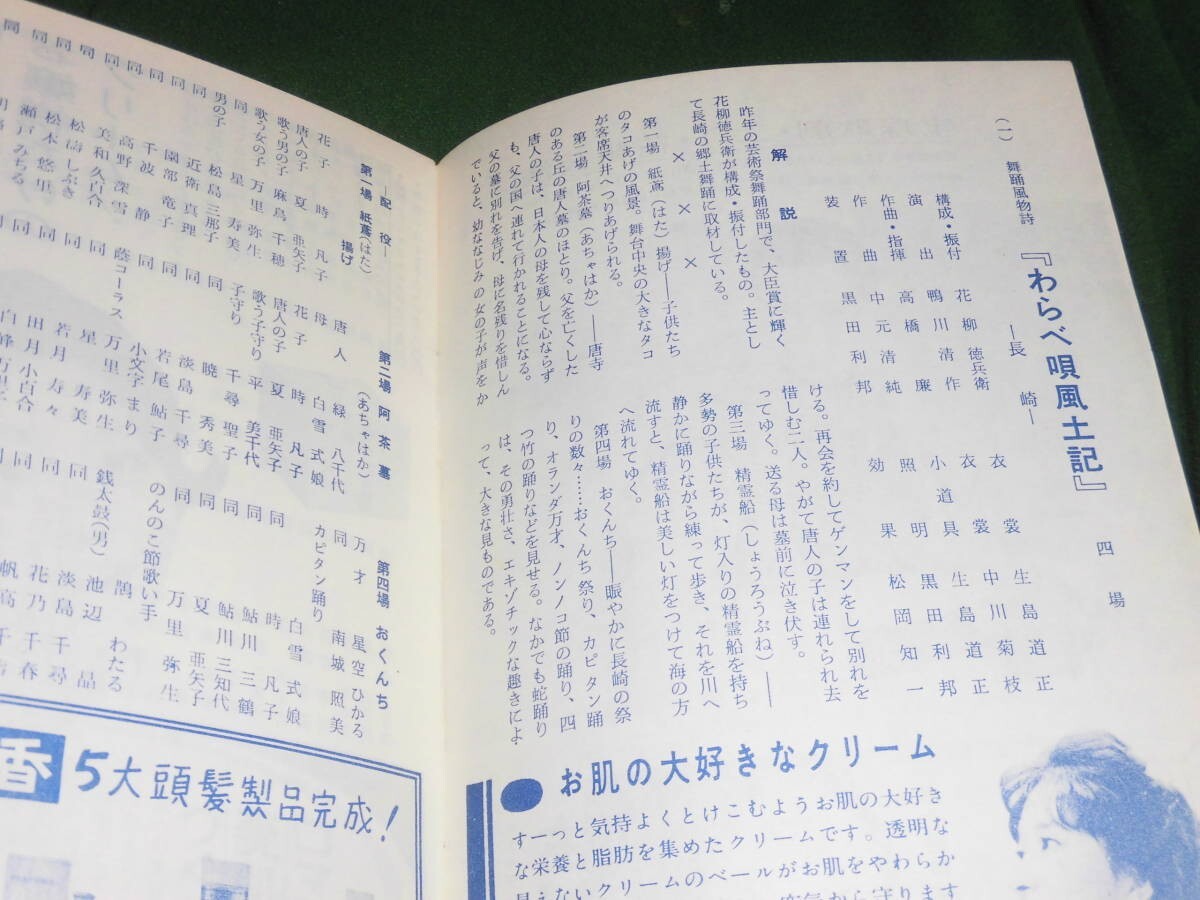 (一) 舞踊風物詩 『わらべ唄風土記』 四場
―長崎―
構成・振付 花柳徳兵衛
演出 鴨川清作
作曲・指揮 高橋廉
作曲 中元清純
装置 黒田利邦
衣裳 生島道正
衣裳 中川菊枝
小道具 生島道正
照明 黒田利邦
効果 松岡知一
解説
昨年の芸術祭舞踊部門で、大臣賞に輝く
花柳徳兵衛が構成・振付したもの。主とし
て長崎の郷土舞踊に取材している。
× × ×
第一場 紙鳶(はた)揚げ――子供たち
のタコあげの風景。舞台中央の大きなタコ
が客席天井へつりあげられる。
第二場 阿茶墓(あちゃはか)――唐寺
のある丘の唐人墓のほとり。父を亡くした
唐人の子は、日本人の母を残して心ならず
も、父の国へ連れて行かれることになる。
父の墓に別れを告げ、母に名残りを惜しん
でいると、幼ななじみの女の子が声をか
ける。再会を約してゲンマンをして別れを
惜しむ二人。やがて唐人の子は連れられ去
ってゆく。送る母は墓前に泣き伏す。
第三場 精霊船(しょうろうぶね)――
多勢の子供たちが、灯入りの精霊船を持ち
静かに踊りながら練って歩き、それを川へ
流すと、精霊船は美しい灯をつけて海の方
へ流れてゆく。
第四場 おくんち――賑やかに長崎の祭
りの数々……おくんち祭り、カピタン踊
り、オランダ万才、ノンノコ節の踊り、四
つ竹の踊りなどを見せる。なかでも蛇踊り
は、その勇壮さ、エキゾチックな趣きによ
って、大きな見ものである。
お肌の大好きなクリーム
すーっと気持よくとけこむようお肌の大好き
な栄養と脂肪を集めたクリームです。透明な
見えないクリームのベールがお肌をやわらか
空気から守ります
―配役―
第一場 紙鳶(はた)揚げ
花子 時凡子
唐人の子 夏亜矢子
歌う男の子 麻鳥千穂
歌う女の子 万里弥生
同 星寿美
男の子 松島三那子
同 近衛真理
同 園部竜子
同 千波静
同 高野深雪
同 美和久百合
同 松濤しぶき
同 松本悠里
同 瀬戸みちる
第二場 阿茶墓
(あちゃはか)
唐人 緑八千代
母 白雪式娘
花子 時凡子
唐人の子 夏亜矢子
歌う子守り 美千代
子守り 平
同 千尋聖子
同 暁秀美
同 淡島千尋
同 若尾鮎子
同 小文字まり
蔭コーラス 万里弥生
同 星寿美
同 若月寿々
同 田月小百合
同 白峰万里子
第四場 おくんち
万才 星空ひかる
同 南城照美
カピタン踊り
白雪式娘
同 時凡子
同 鮎川三鶴
同 鮎川三知代
同 夏亜矢子
同 万里弥生
のんのこ節歌い手
鵠わたる
銭太鼓(男) 池辺晶
同 淡島千尋
同 花乃千春
帆高千
香
5大頭髪製品完成!